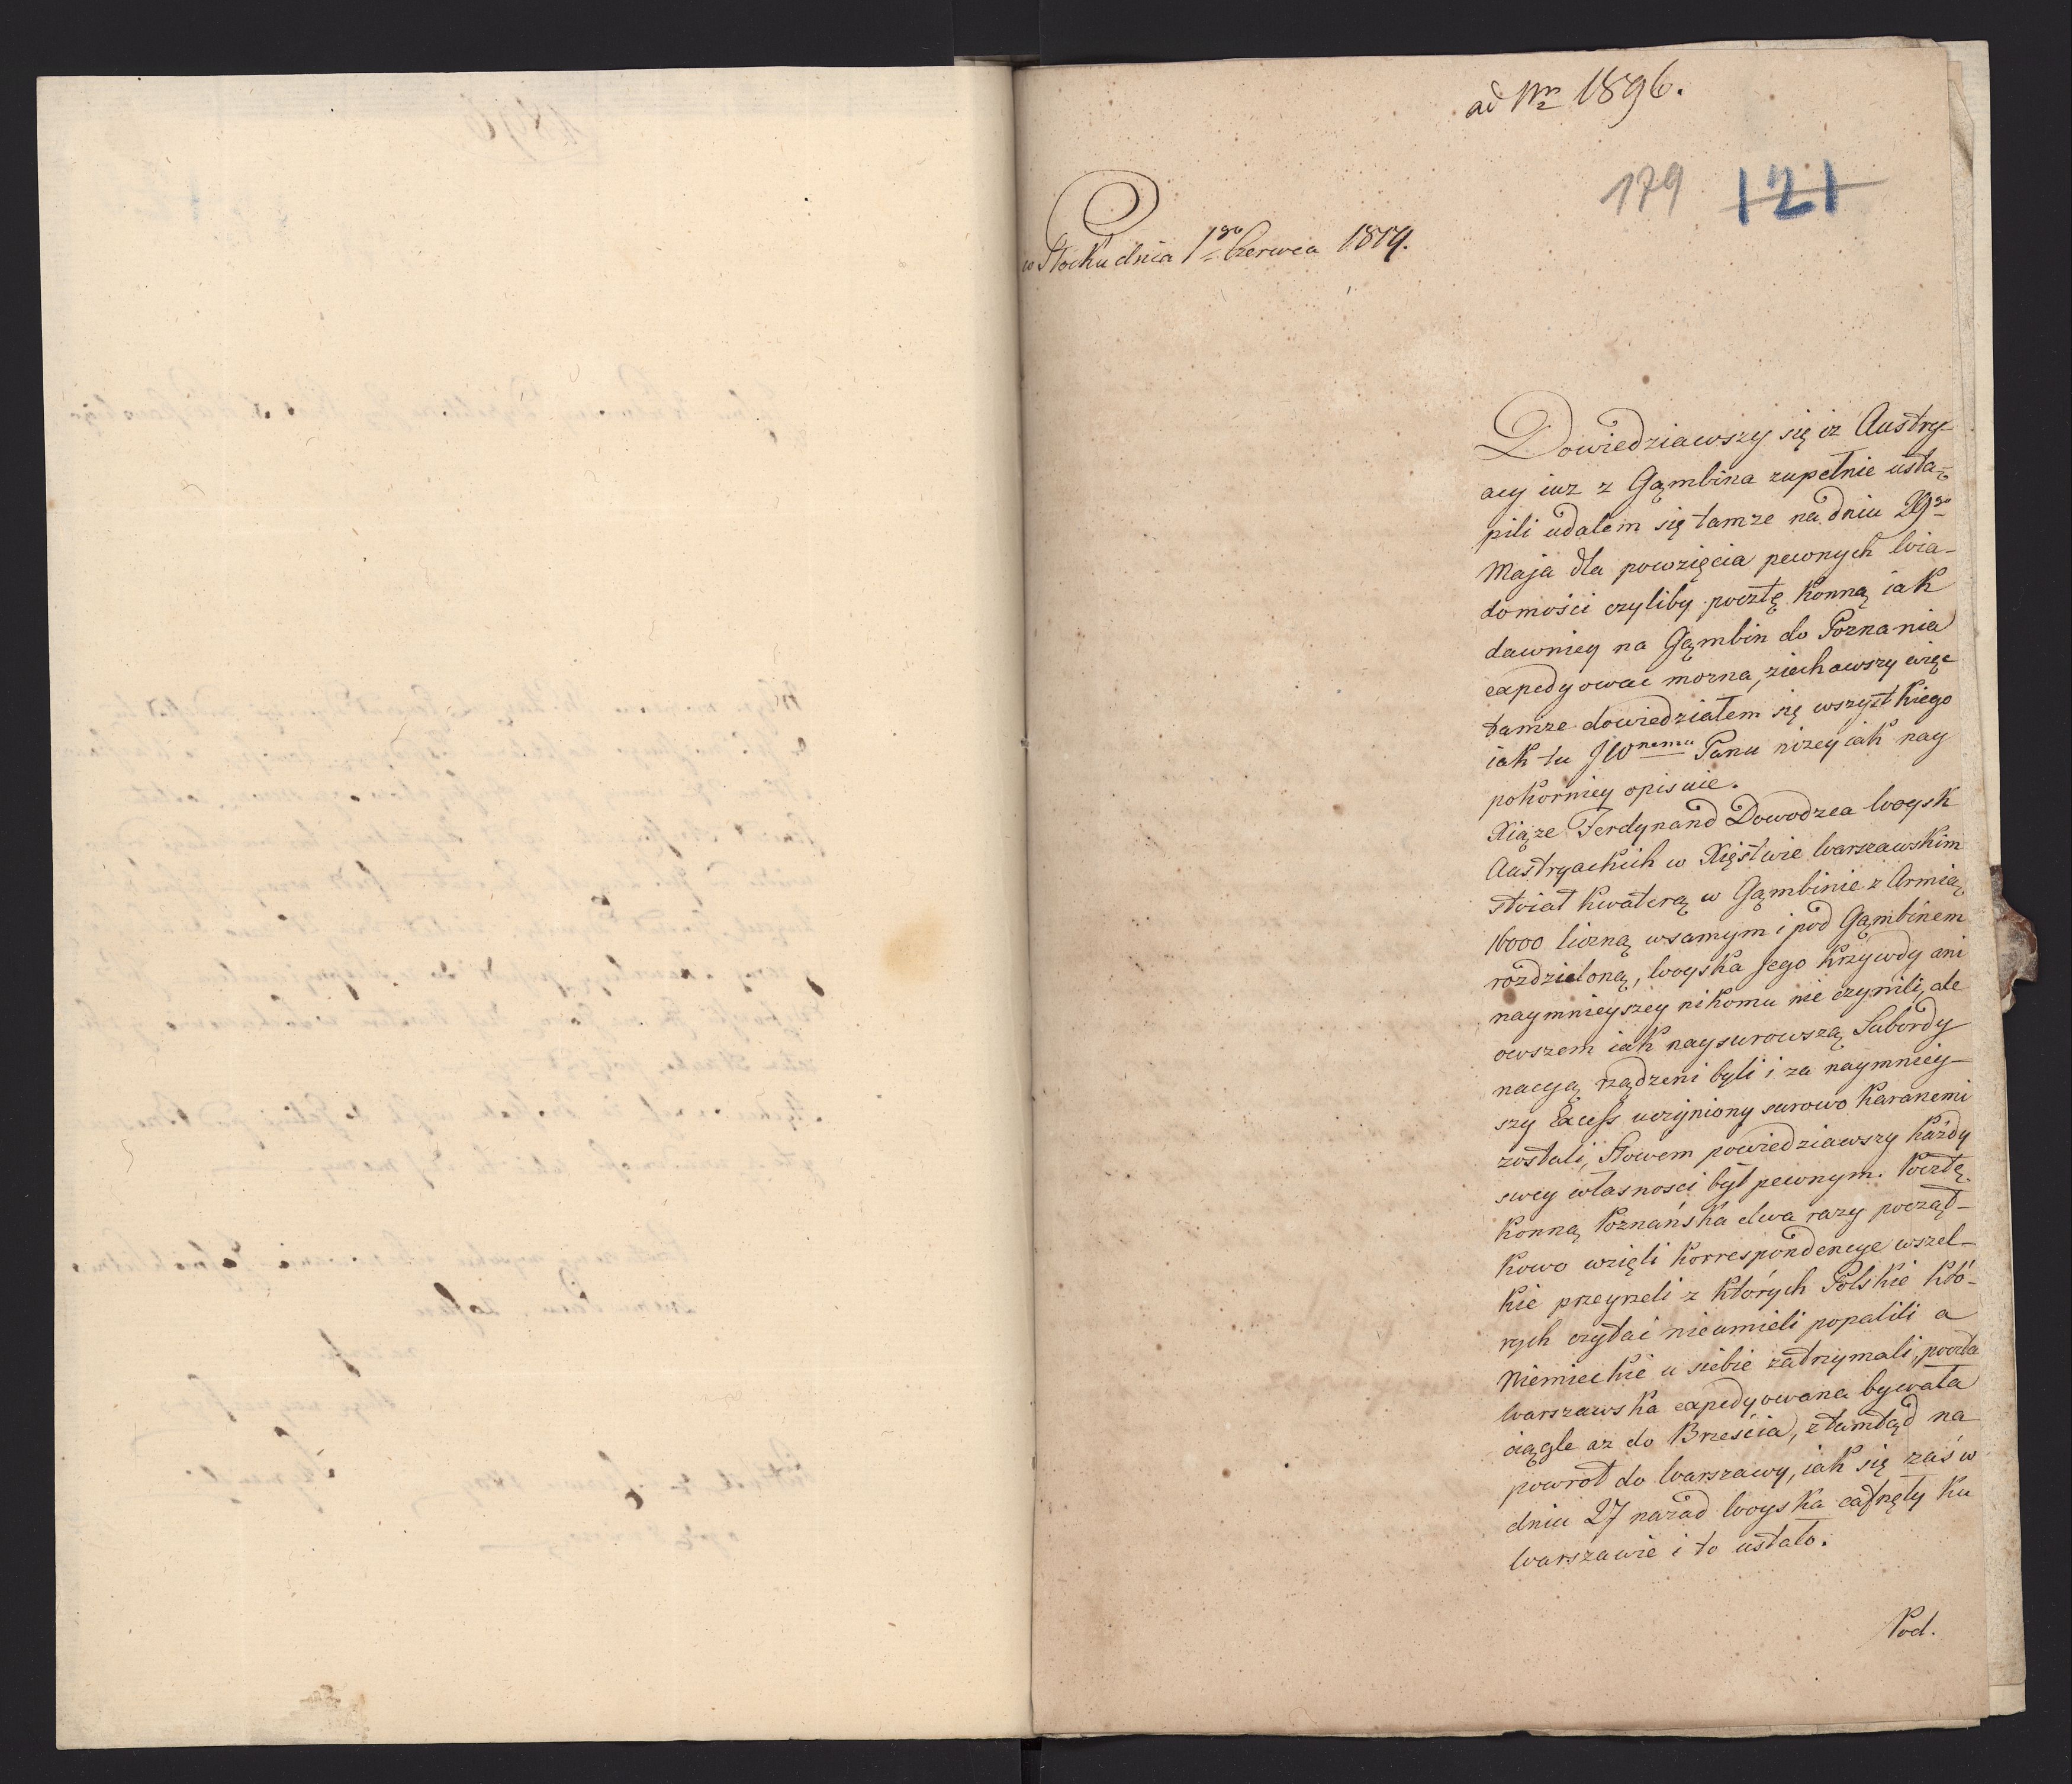 ad Nrm 1896.
179 121
w Płocku dnia 1go Czerwca 1809.
Dowiedziawszy się iż Austry-
acy iuż z Gąmbina zupełnie ustą-
pili udałem się tamże na dniu 29go
Maja dla powzięcia pewnych wia-
domości czyliby pocztę konną iak
dawniey na Gąmbin do Poznania
expedyować można, ziechawszy więc
tamże dowiedziałem się wszystkiego
iak tu JWnemu Panu niżey iak nay
pokorniey opisuie.
Xiąże Ferdynand Dowodzca Woysk
Austryackich w Xięstwie Warszawskim
stoiał kwaterą w Gąmbinie z Armią
16000 liczną w samym i pod Gąmbinem
rozdzieloną, Woyska Jego krzywdy ani
naymnieyszey nikomu nie czynili, ale
owszem iak naysurowszą Subordy
nacyą rządzeni byli i za naymniey-
szy Excess uczyniony surowo karanemi
zostali, Słowem powiedziawszy każdy
swey własnosci był pewnym. Pocztę
konną Poznańską dwa razy począt-
kowo wzięli korrespondencye wszel-
kie przeyrzeli z których Polskie któ-
rych czytać nieumieli popalili a
Niemieckie u siebie zatrzymali, poczta
Warszawska expedyowana bywała
ciągle aż do Brześcia, ztamtąd na
powrót do Warszawy, iak się zaś w
dniu 27 nazad Woyska cafnęły ku
Warszawie i to ustało.
Pod.